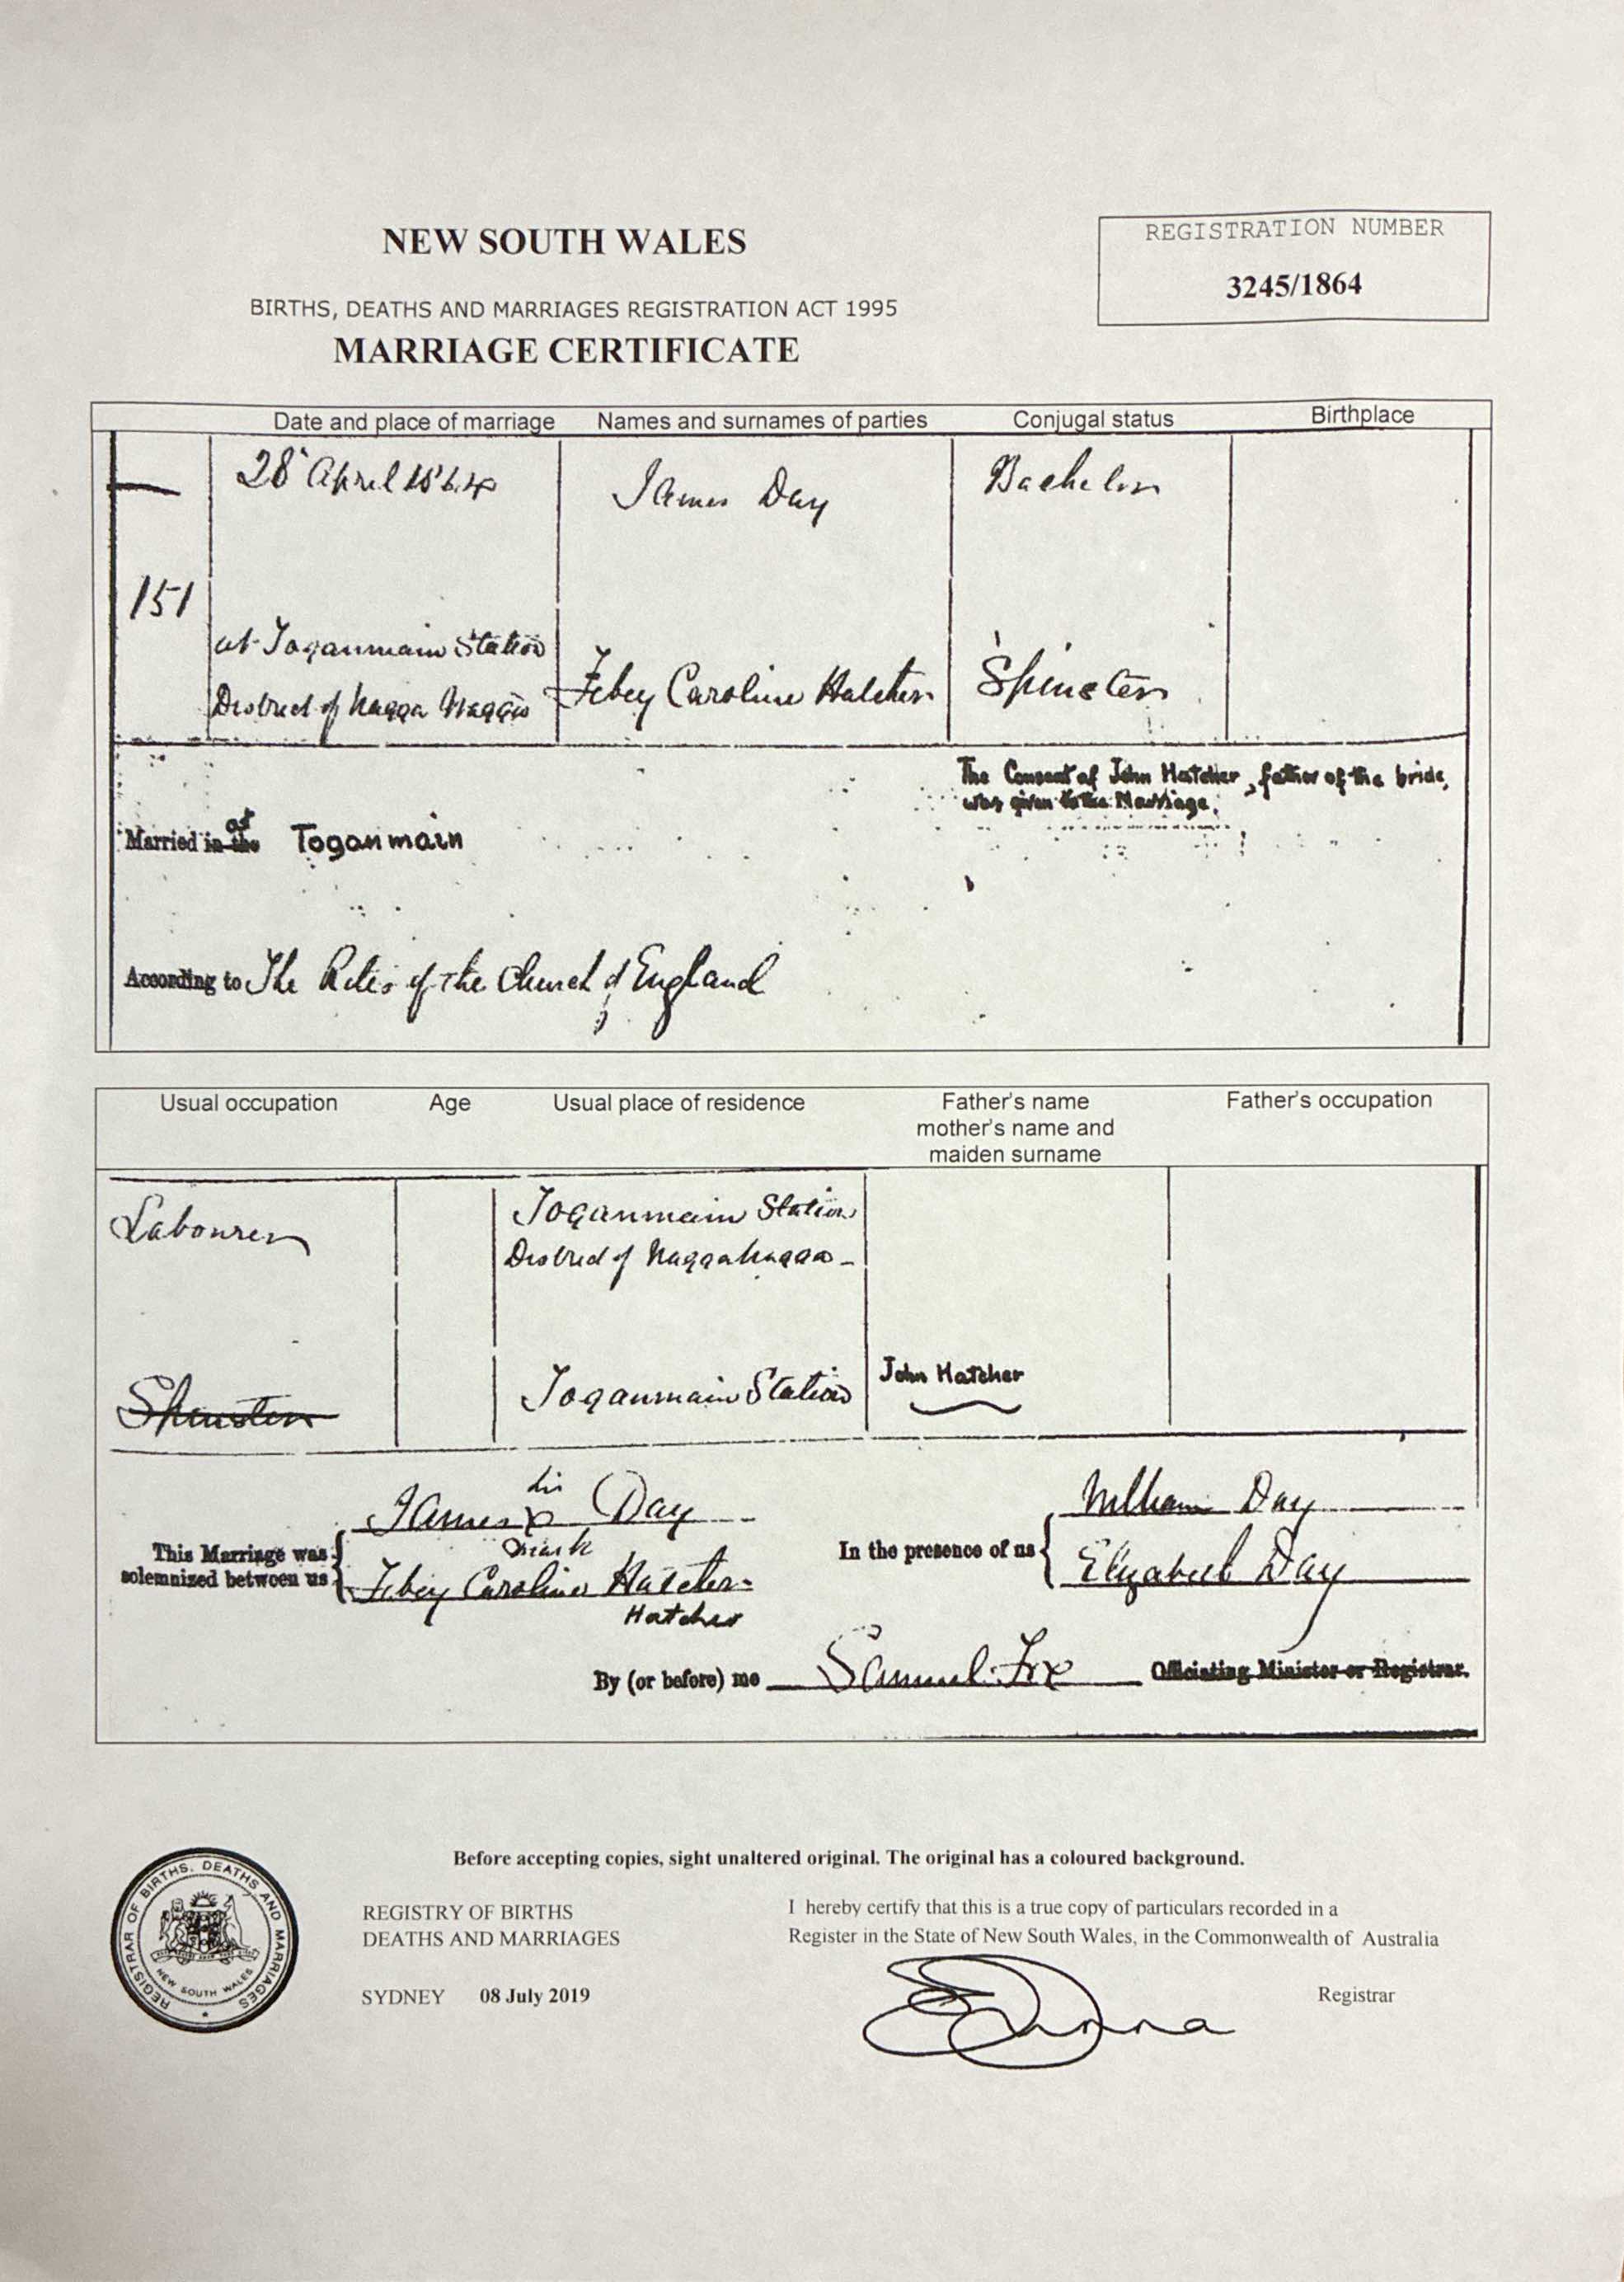 NEW SOUTH WALES
REGISTRATION NUMBER
3245/1864
BIRTHS, DEATHS AND MARRIAGES REGISTRATION ACT 1995
MARRIAGE CERTIFICATE
Date and place of marriage Names and surnames of parties Conjugal status Birthplace
28 April 1864 James Day Bachelor
151
at Toganmain Station
District of Wagga Wagga Febey Caroline Hatcher Spinster
The Consent of John Hatcher, father of the bride,
was given to the Marriage.
at
Married in the Toganmain
According to The Rites of the Church of England
Usual occupation Age Usual place of residence Father's name Father's occupation
mother's name and
maiden surname
Labourer Toganmain Station
District of Wagga Wagga
Spinster Toganmain Station John Hatcher
his
James x Day William Day
mark
This Marriage was
solemnized between us Febey Caroline Hatcher
In the presence of us Elizabeth Day
Hatcher
By (or before) me Samuel Fox Officiating Minister or Registrar.
Before accepting copies, sight unaltered original. The original has a coloured background.
REGISTRAR OF BIRTHS, DEATHS AND MARRIAGES
NEW SOUTH WALES
REGISTRY OF BIRTHS
DEATHS AND MARRIAGES
SYDNEY 08 July 2019
I hereby certify that this is a true copy of particulars recorded in a
Register in the State of New South Wales, in the Commonwealth of Australia
Registrar